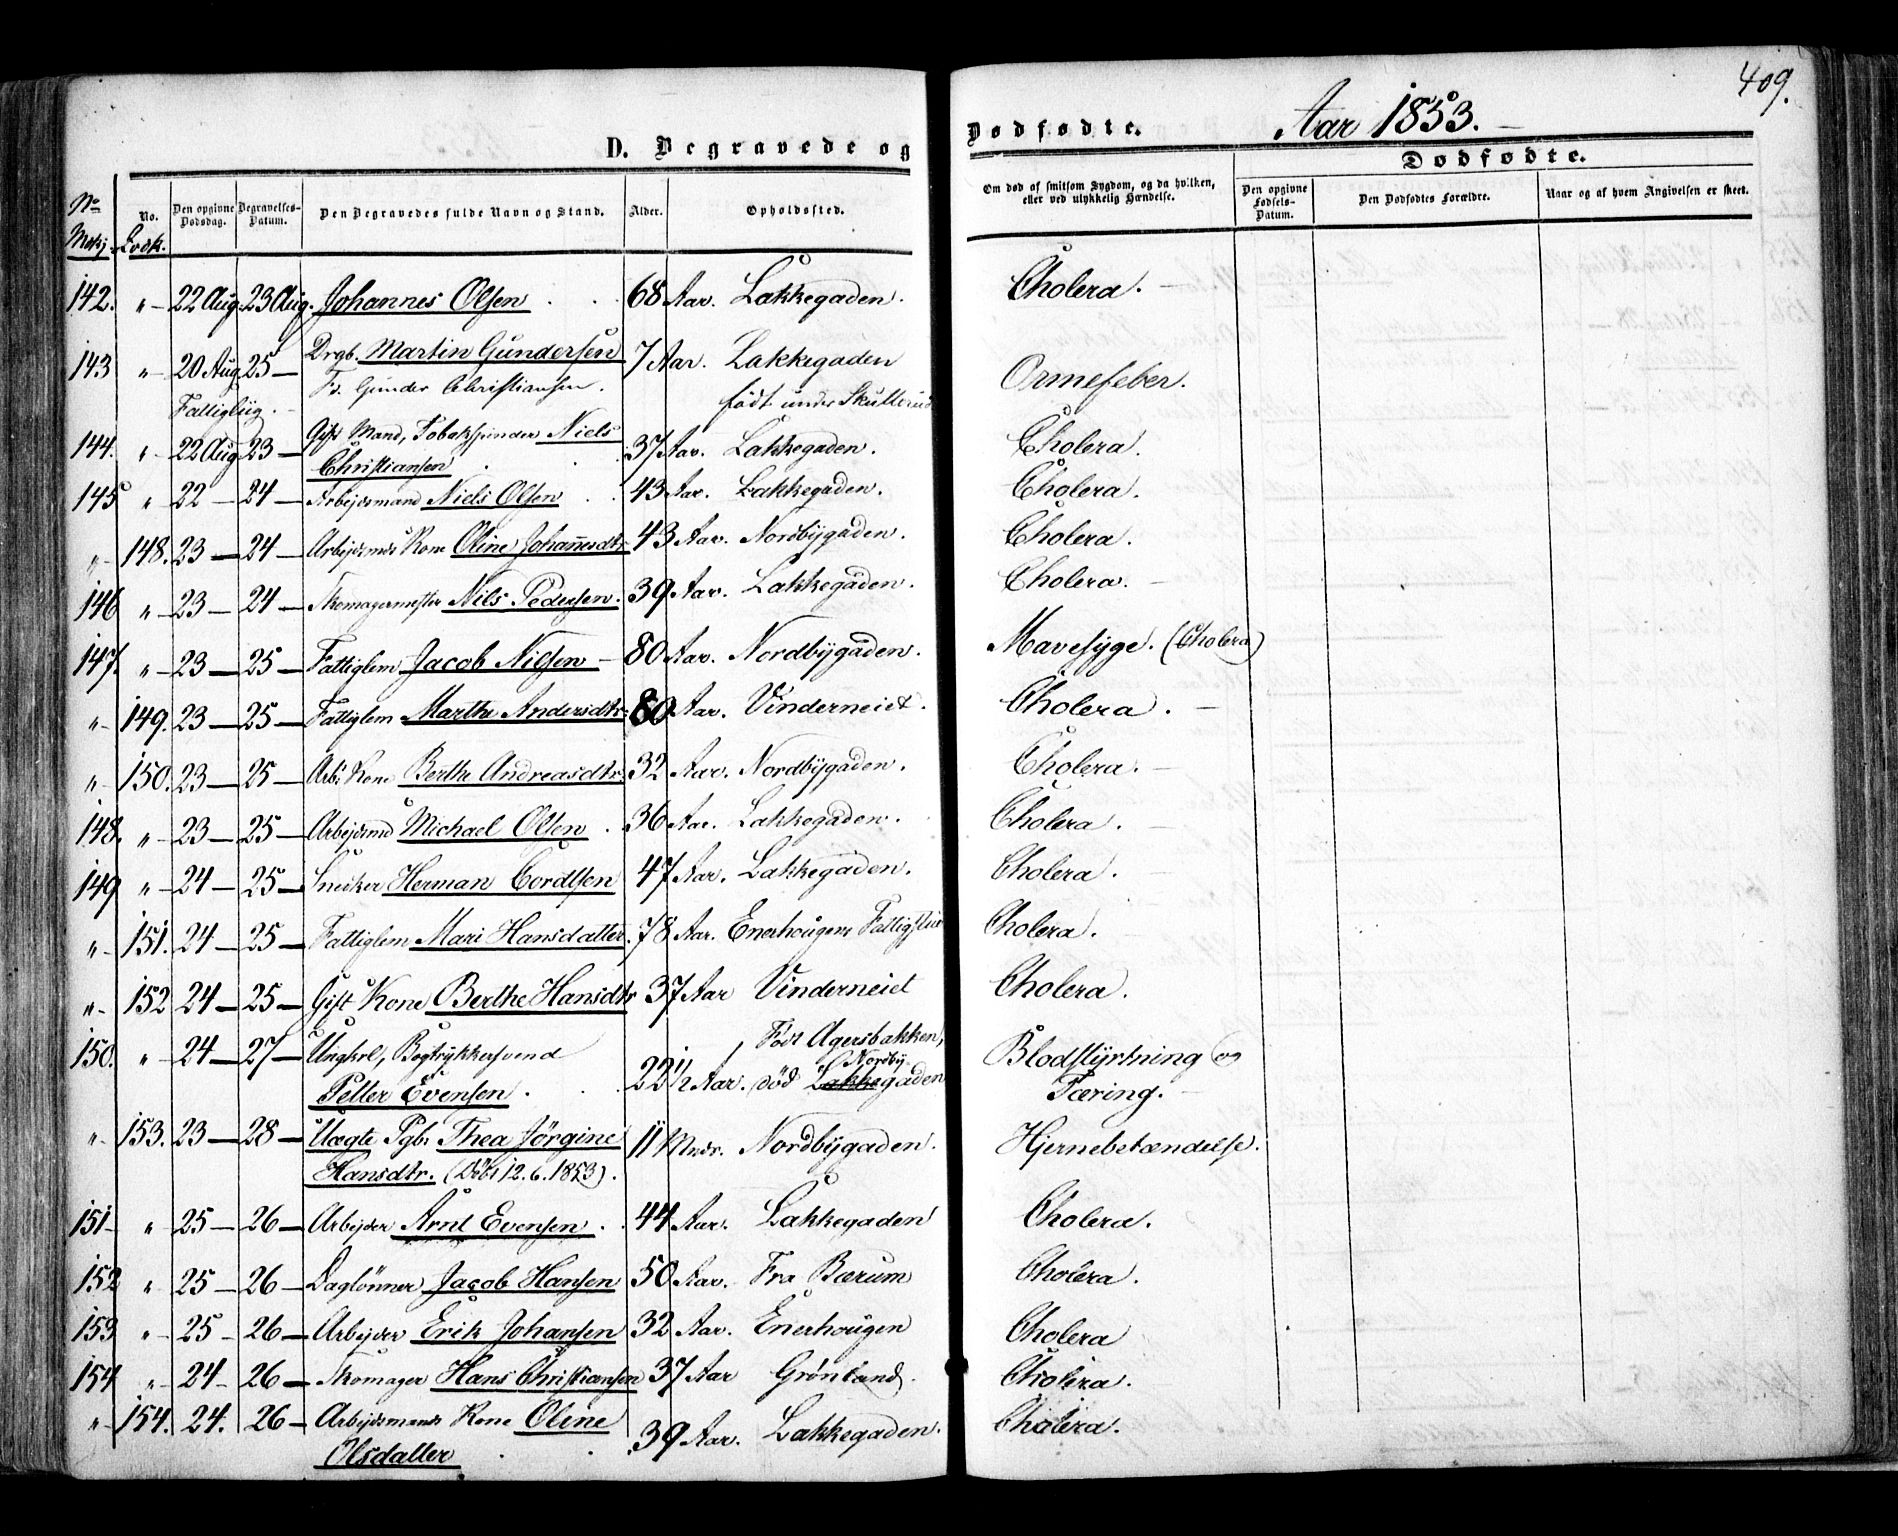 409.
Aar 1853.
D. Begravede og Dødfødte.
Dødfødte.
No Mskj. No. Qvdk. Den opgivne Dødsdag. Begravelses-Datum. Den Begravedes fulde Navn og Stand. Alder. Opholdssted. Om død af smitsom Sygdom, og da hvilken, eller ved ulykkelig Hændelse. Den opgivne Fødsels-Datum. Den Dødfødtes Forældre. Naar og af hvem Angivelsen er skeet.
142. " 22 Aug. 23 Aug. Johannes Olsen 68 Aar. Lakkegaden. Cholera.
143 " 20 Aug. 25 Drgb. Martin Gundersen 7 Aar. Lakkegaden Ormefeber.
F. Gunder Christiansen. født under Skullerud
Fattiglüg.
144. " 22 Aug 23 Gift Mand, Tobakspinder Niels 37 Aar. Lakkegaden. Cholera.
Christiansen
145 " 22 24 Arbejdsmand Niels Olsen 43 Aar. Lakkegaden. Cholera.
" 148. 23 24 Arbejdsmds Kone Oline Johannesdtr 43 Aar. Nordbÿgaden. Cholera.
146 " 23 24 Skomagermester Nils Pedersen. 39 Aar. Lakkegaden. Cholera.
147. " 23 25 Fattiglem Jacob Nilsen 80 Aar. Nordbÿgaden. Mavesyge. (Cholera)
" 149. 23 25 Fattiglem Marthe Andersdtr. 80 Aar. Vinderneiet. Cholera.
" 150. 23 25 Arb: Kone Berthe Andreasdtr. 32 Aar. Nordbÿgaden. Cholera.
148. " 23 25 Arbejdsmd Michael Olsen 36 Aar. Lakkegaden. Cholera.
149 " 24 25 Snedker Herman Cordtsen 47 Aar. Lakkegaden. Cholera.
" 151. 24 25 Fattiglem Mari Hansdatter. 78 Aar. Enerhougens Cholera.
" 152 24 25 Gift Kone Berthe Hansdtr 37 Aar Vinderneiet Cholera.
150. " 24 27 Ungkrl, Bogtrykkersvend Født Agersbakken, Blodstÿrtning og
Petter Evensen. 22 1/2 Aar. død Lakkegaden Nordby Tæring.
" 153. 23 28 Uægte Pgb. Thea Jörgine 11 Mndr. Nordbÿgaden. Hjernebetændelse.
Hansdtr. (Döbt 12.6.1853).
151 " 25 26 Arbejder Arnt Evensen. 44 Aar. Lakkegaden Cholera.
152 " 25 26 Daglönner Jacob Hansen 50 Aar. Fra Bærum Cholera.
153 " 25 26 Arbejder Erik Johansen 32 Aar. Enerhougen Cholera
154 " 24 26 Skomager Hans Christiansen 37 Aar Grønland. Cholera.
" 154. 24. 26 Arbejdsmands Kone Oline 39 Aar. Lakkegaden. Cholera.
Olsdatter